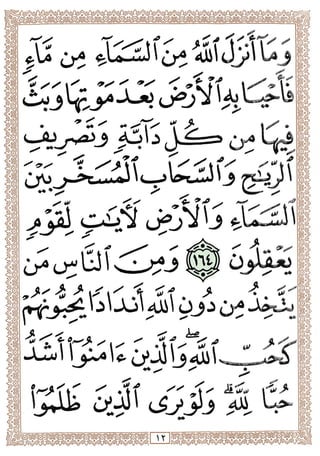 وَمَآ أَنزَلَ ٱللَّهُ مِنَ ٱلسَّمَآءِ مِن مَّآءٍ
فَأَحْيَا بِهِ ٱلْأَرْضَ بَعْدَ مَوْتِهَا وَبَثَّ
فِيهَا مِن كُلِّ دَآبَّةٍ وَتَصْرِيفِ
ٱلرِّيَٰحِ وَٱلسَّحَابِ ٱلْمُسَخَّرِ بَيْنَ
ٱلسَّمَآءِ وَٱلْأَرْضِ لَءَايَٰتٍ لِّقَوْمٍ
يَعْقِلُونَ ١٦٤ وَمِنَ ٱلنَّاسِ مَن
يَتَّخِذُ مِن دُونِ ٱللَّهِ أَندَادًا يُحِبُّونَهُمْ
كَحُبِّ ٱللَّهِ ۖ وَٱلَّذِينَ ءَامَنُوٓا۟ أَشَدُّ
حُبًّا لِّلَّهِ ۗ وَلَوْ يَرَى ٱلَّذِينَ ظَلَمُوٓا۟
١٢